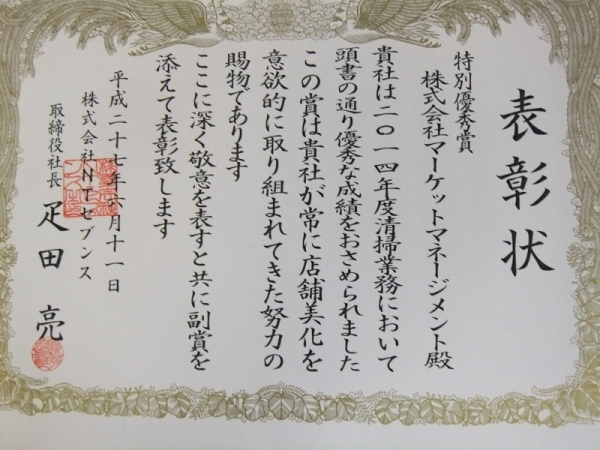 表彰状
特別優秀賞
株式会社マーケットマネージメント殿
貴社は二〇一四年度清掃業務において
頭書の通り優秀な成績をおさめられました
この賞は貴社が常に店舗美化を
意欲的に取り組まれてきた努力の
賜物であります
ここに深く敬意を表すと共に副賞を
添えて表彰致します
平成二十七年六月十一日
株式会社NTセブンス
取締役社長 疋田亮